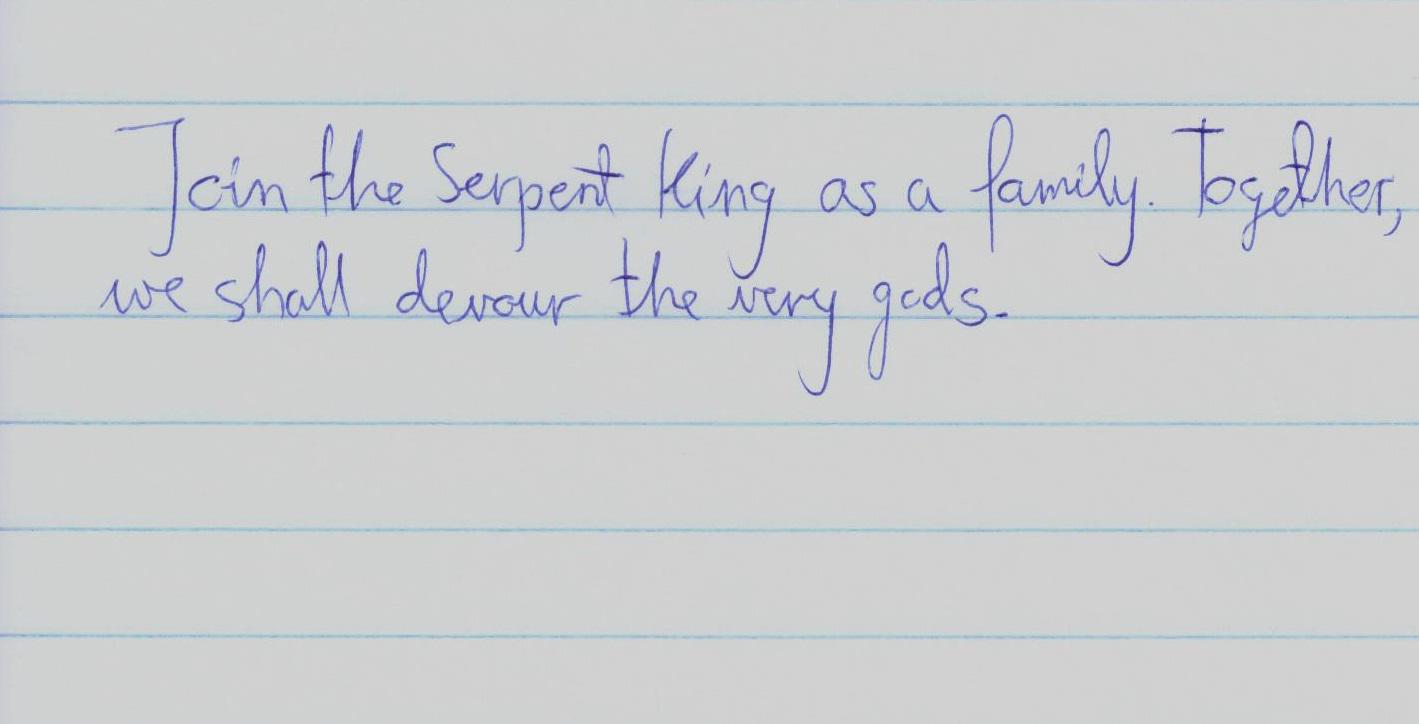 Join the Serpent King as a family. Together,
we shall devour the very gods.